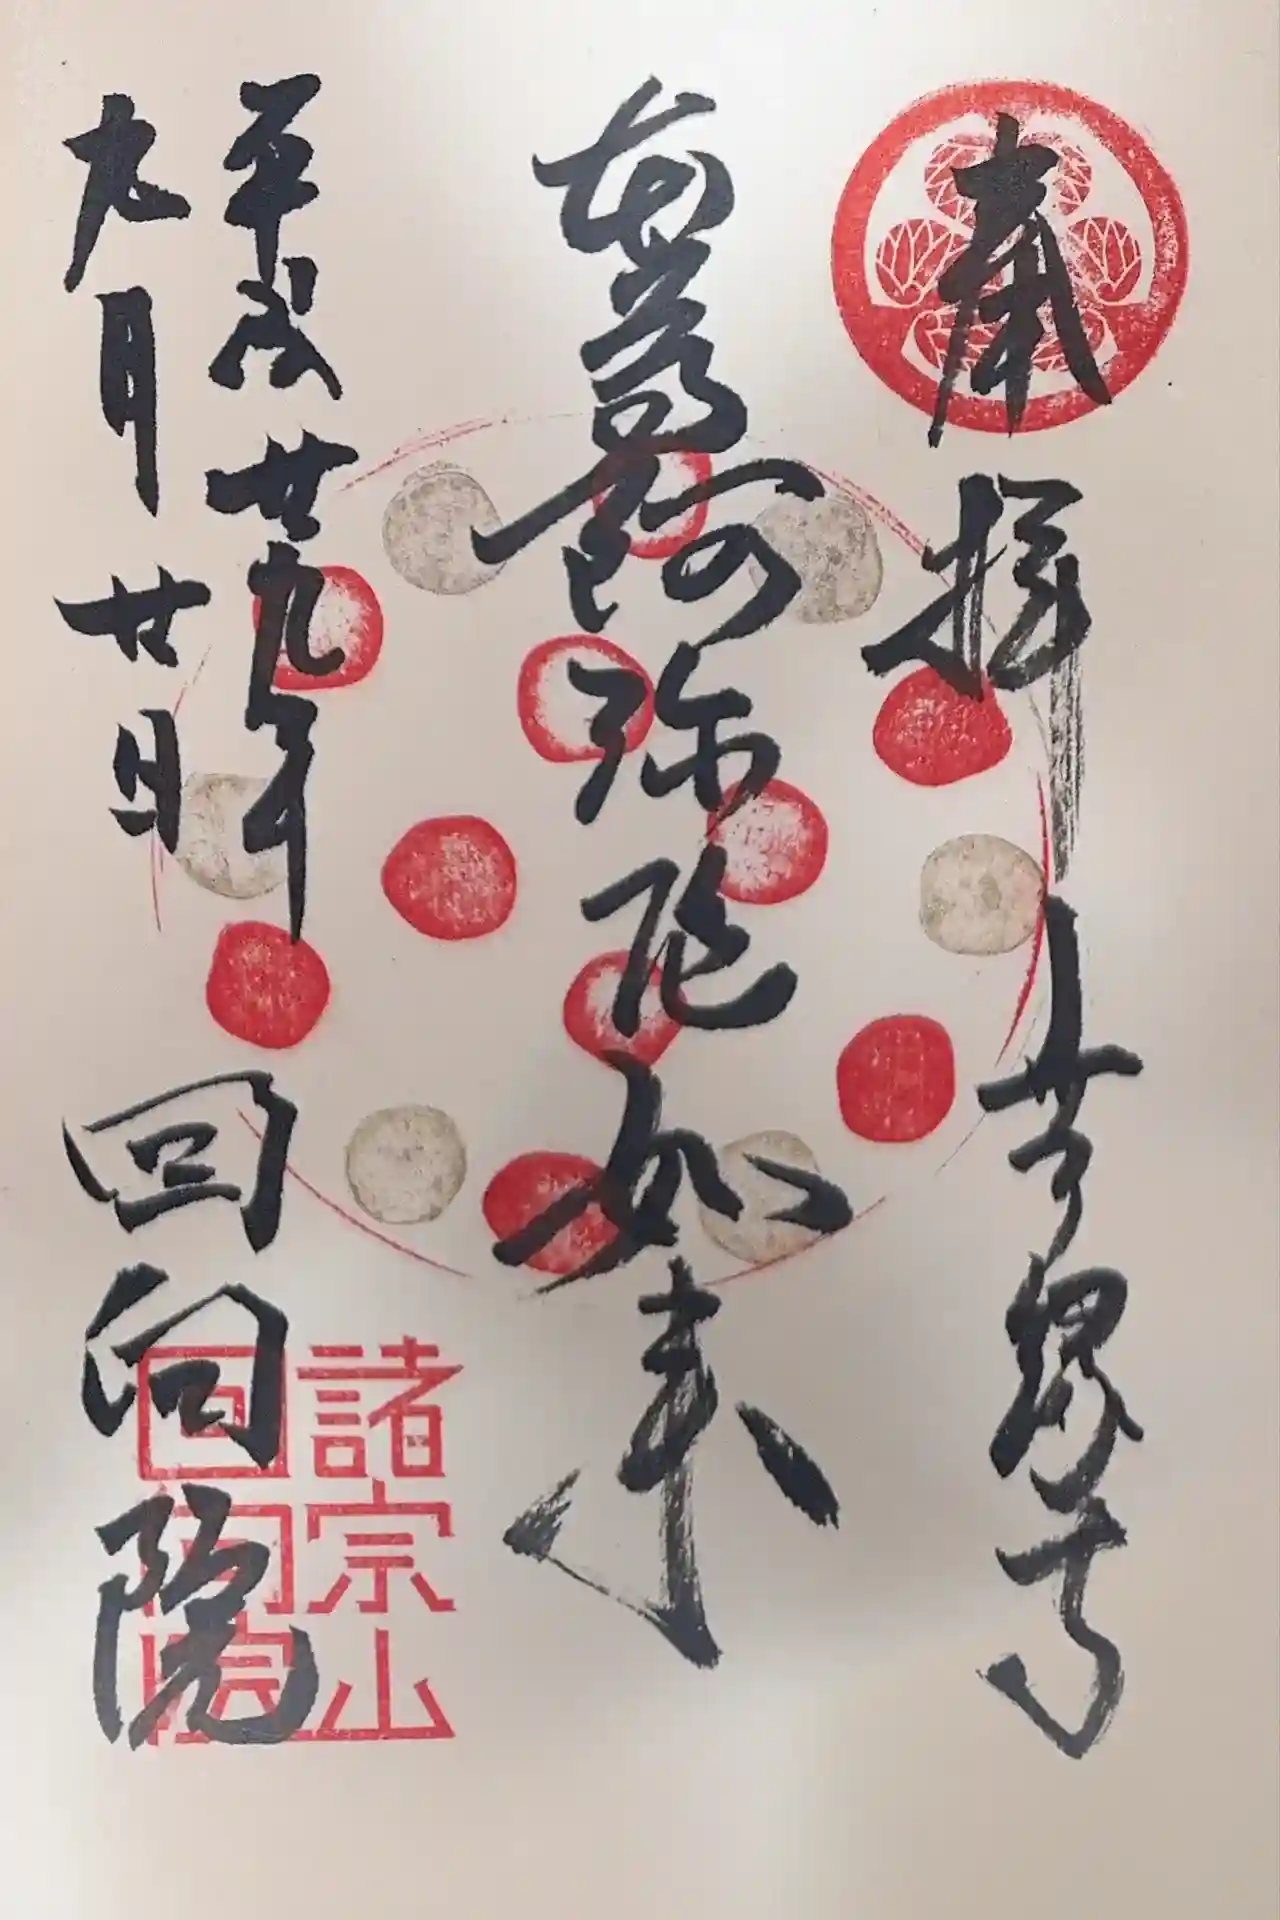 奉拝 無縁寺
阿弥陀如来
平成廿九年
九月廿日 回向院
諸宗山
回向院